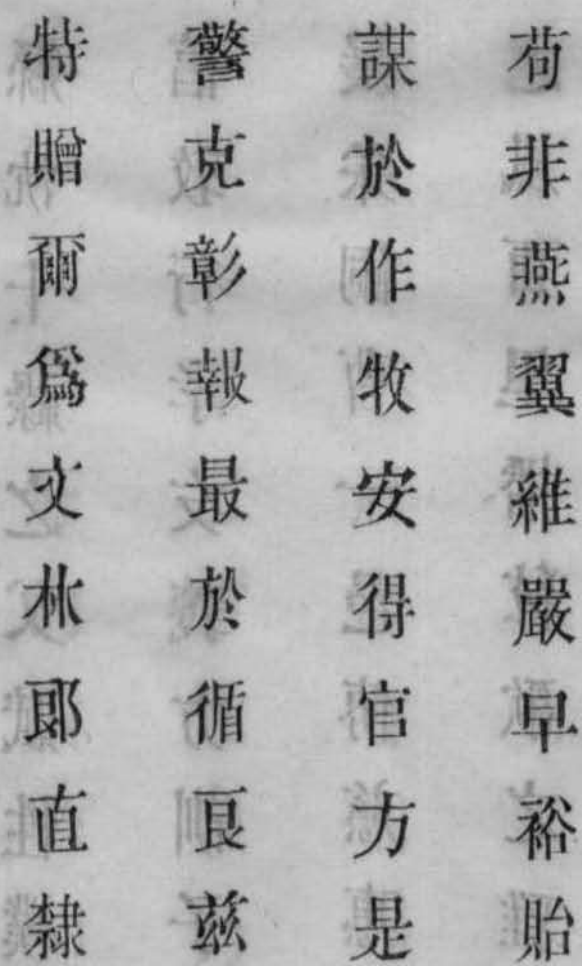 苟非燕翼維嚴早裕貽
謀於作牧安得官方是
警克彰報最於循良茲
特贈爾爲文林郎直隸